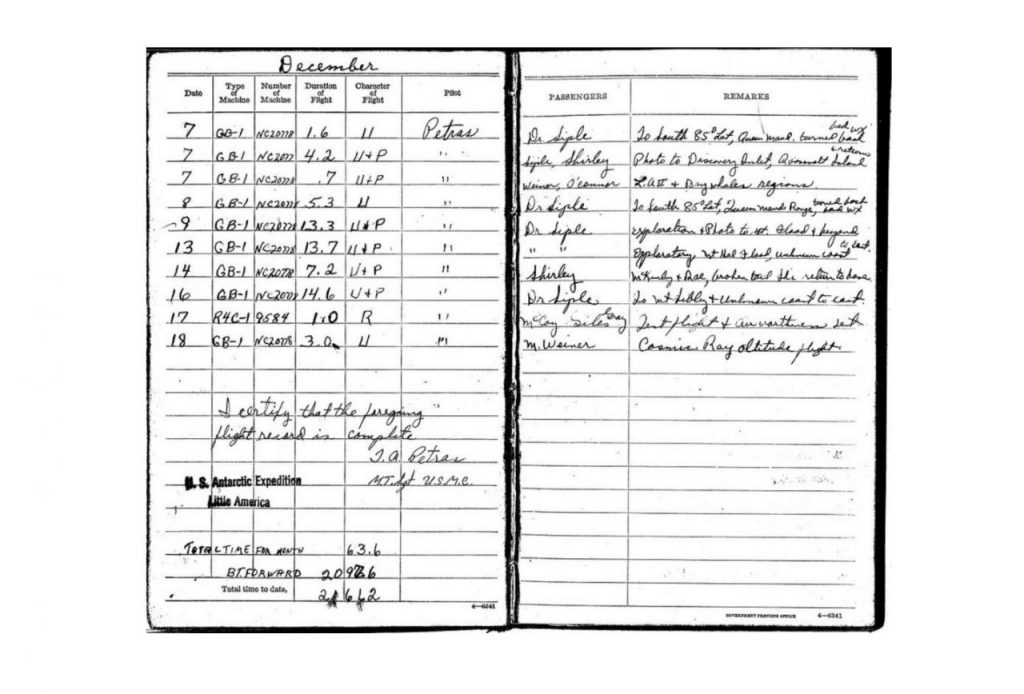 December
Date Type of Machine Number of Machine Duration of Flight Character of Flight Pilot PASSENGERS REMARKS
7 GB-1 NC20778 1.6 U Petras Dr Siple To South 85° Lat, Queen Maud. turned back bad wx
7 GB-1 NC2077 4.2 U+P " Siple, Shirley Photo to Discovery Inlet, Roosevelt Island & return
7 GB-1 NC20778 .7 U+P " Weiner, O'Connor L.A II & Bay whales regions.
8 GB-1 NC20778 5.3 U " Dr Siple To South 85° Lat, Queen Mauds Range, turned back bad wx
9 GB-1 NC20778 13.3 U+P " Dr Siple exploration & Photo to & beyond
13 GB-1 NC20778 13.7 U+P " " " Exploratory, Mt Hal Flood, unknown coast to East.
14 GB-1 NC20778 7.2 U+P " Shirley McKinley & Rae, broken tail Ski return to base
16 GB-1 NC20778 14.6 U+P " Dr Siple To Mt Sibley & Unknown coast to east.
17 R4C-1 9584 1.0 R " McCoy Giles Gray Test flight & airworthiness test
18 GB-1 NC20778 3.0 U " M. Weiner Cosmic Ray altitude flight
I certify that the foregoing
flight record is complete
T. A Petras
M.T. Sgt U.S.M.C.
U. S. Antarctic Expedition
Little America
TOTAL TIME FOR MONTH 63.6
BT. FORWARD
Total time to date,
4—6341
GOVERNMENT PRINTING OFFICE 4—6341